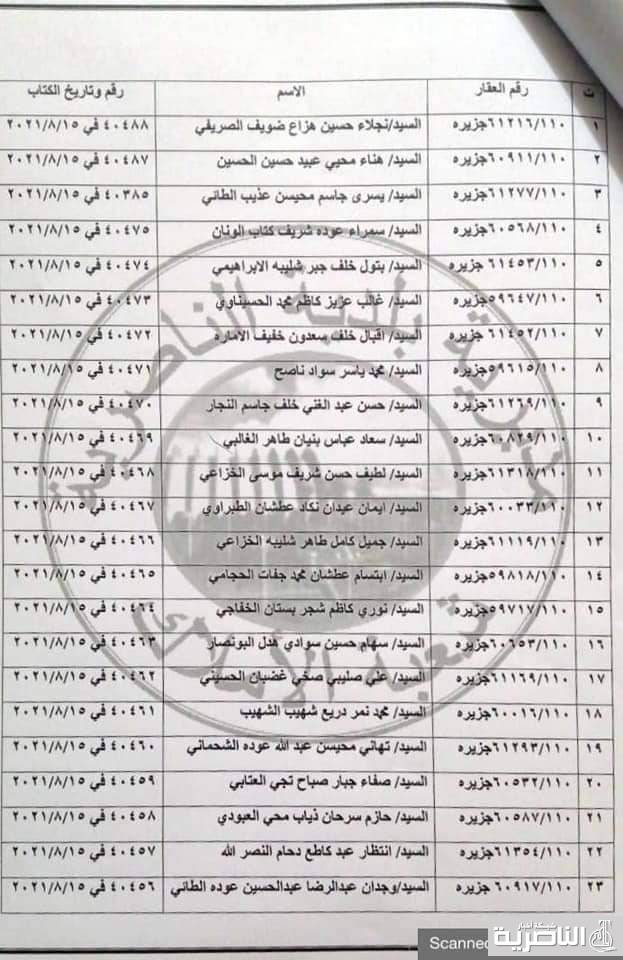 ت رقم العقار الاسم رقم وتاريخ الكتاب
١ ٦١٢١٦/١١٠جزيره السيد/نجلاء حسين هزاع ضويف الصريفي ٤٠٤٨٨ في ٢٠٢١/٨/١٥
٢ ٦٠٩١١/١١٠جزيره السيد/ هناء محيي عبيد حسين الحسين ٤٠٤٨٧ في ٢٠٢١/٨/١٥
٣ ٦١٢٧٧/١١٠جزيره السيد/ يسرى جاسم محيسن عذيب الطائي ٤٠٣٨٥ في ٢٠٢١/٨/١٥
٤ ٦٠٥٦٨/١١٠جزيره السيد/ سمراء عوده شريف كتاب الونان ٤٠٤٧٥ في ٢٠٢١/٨/١٥
٥ ٦١٤٥٣/١١٠ جزيره السيد/ بتول خلف جبر شليبه الابراهيمي ٤٠٤٧٤ في ٢٠٢١/٨/١٥
٦ ٥٩٦٤٧/١١٠جزيره السيد/ غالب عزيز كاظم محمد الحسيناوي ٤٠٤٧٣ في ٢٠٢١/٨/١٥
٧ ٦١٤٥٢/١١٠ جزيره السيد/ اقبال خلف سعدون خفيف الاماره ٤٠٤٧٢ في ٢٠٢١/٨/١٥
٨ ٥٩٦١٥/١١٠جزيره السيد/ محمد ياسر سواد ناصح ٤٠٤٧١ في ٢٠٢١/٨/١٥
٩ ٦١٢٦٩/١١٠جزيره السيد/ حسن عبد الغني خلف جاسم النجار ٤٠٤٧٠ في ٢٠٢١/٨/١٥
١٠ ٦٠٨٢٩/١١٠جزيره السيد/ سعاد عباس بنيان طاهر الغالبي ٤٠٤٦٩ في ٢٠٢١/٨/١٥
١١ ٦١٣١٨/١١٠جزيره السيد/ لطيف حسن شريف موسى الخزاعي ٤٠٤٦٨ في ٢٠٢١/٨/١٥
١٢ ٦٠٠٣٣/١١٠جزيره السيد/ ايمان عيدان نكاد عطشان الطبراوي ٤٠٤٦٧ في ٢٠٢١/٨/١٥
١٣ ٦١١١٩/١١٠جزيره السيد/ جميل كامل طاهر شليبه الخزاعي ٤٠٤٦٦ في ٢٠٢١/٨/١٥
١٤ ٥٩٨١٨/١١٠جزيره السيد/ ابتسام عطشان محمد جفات الحجامي ٤٠٤٦٥ في ٢٠٢١/٨/١٥
١٥ ٥٩٧١٧/١١٠جزيره السيد/ نوري كاظم شجر بستان الخفاجي ٤٠٤٦٤ في ٢٠٢١/٨/١٥
١٦ ٦٠٦٥٣/١١٠جزيره السيد/ سهام حسين سوادي هدل البونصار ٤٠٤٦٣ في ٢٠٢١/٨/١٥
١٧ ٦١١٦٩/١١٠جزيره السيد/ علي صليبي صخي غضبان الحسيني ٤٠٤٦٢ في ٢٠٢١/٨/١٥
١٨ ٦٠٠١٦/١١٠جزيره السيد/ محمد نمر دريع شهيب الشهيب ٤٠٤٦١ في ٢٠٢١/٨/١٥
١٩ ٦١٢٩٣/١١٠جزيره السيد/ تهاني محيسن عبد الله عوده الشحماني ٤٠٤٦٠ في ٢٠٢١/٨/١٥
٢٠ ٦٠٥٣٢/١١٠جزيره السيد/ صفاء جبار صباح تجي العتابي ٤٠٤٥٩ في ٢٠٢١/٨/١٥
٢١ ٦٠٥٨٧/١١٠جزيره السيد/ حازم سرحان ذياب محي العبودي ٤٠٤٥٨ في ٢٠٢١/٨/١٥
٢٢ ٦١٣٥٤/١١٠جزيره السيد/ انتظار عبد كاطع دحام النصر الله ٤٠٤٥٧ في ٢٠٢١/٨/١٥
٢٣ ٦٠٩١٧/١١٠ جزيره السيد/وجدان عبدالرضا عبدالحسين عوده الطائي ٤٠٤٥٦ في ٢٠٢١/٨/١٥
مديرية بلدية الناصرية
شعبة الأملاك
Scanned
الناصرية